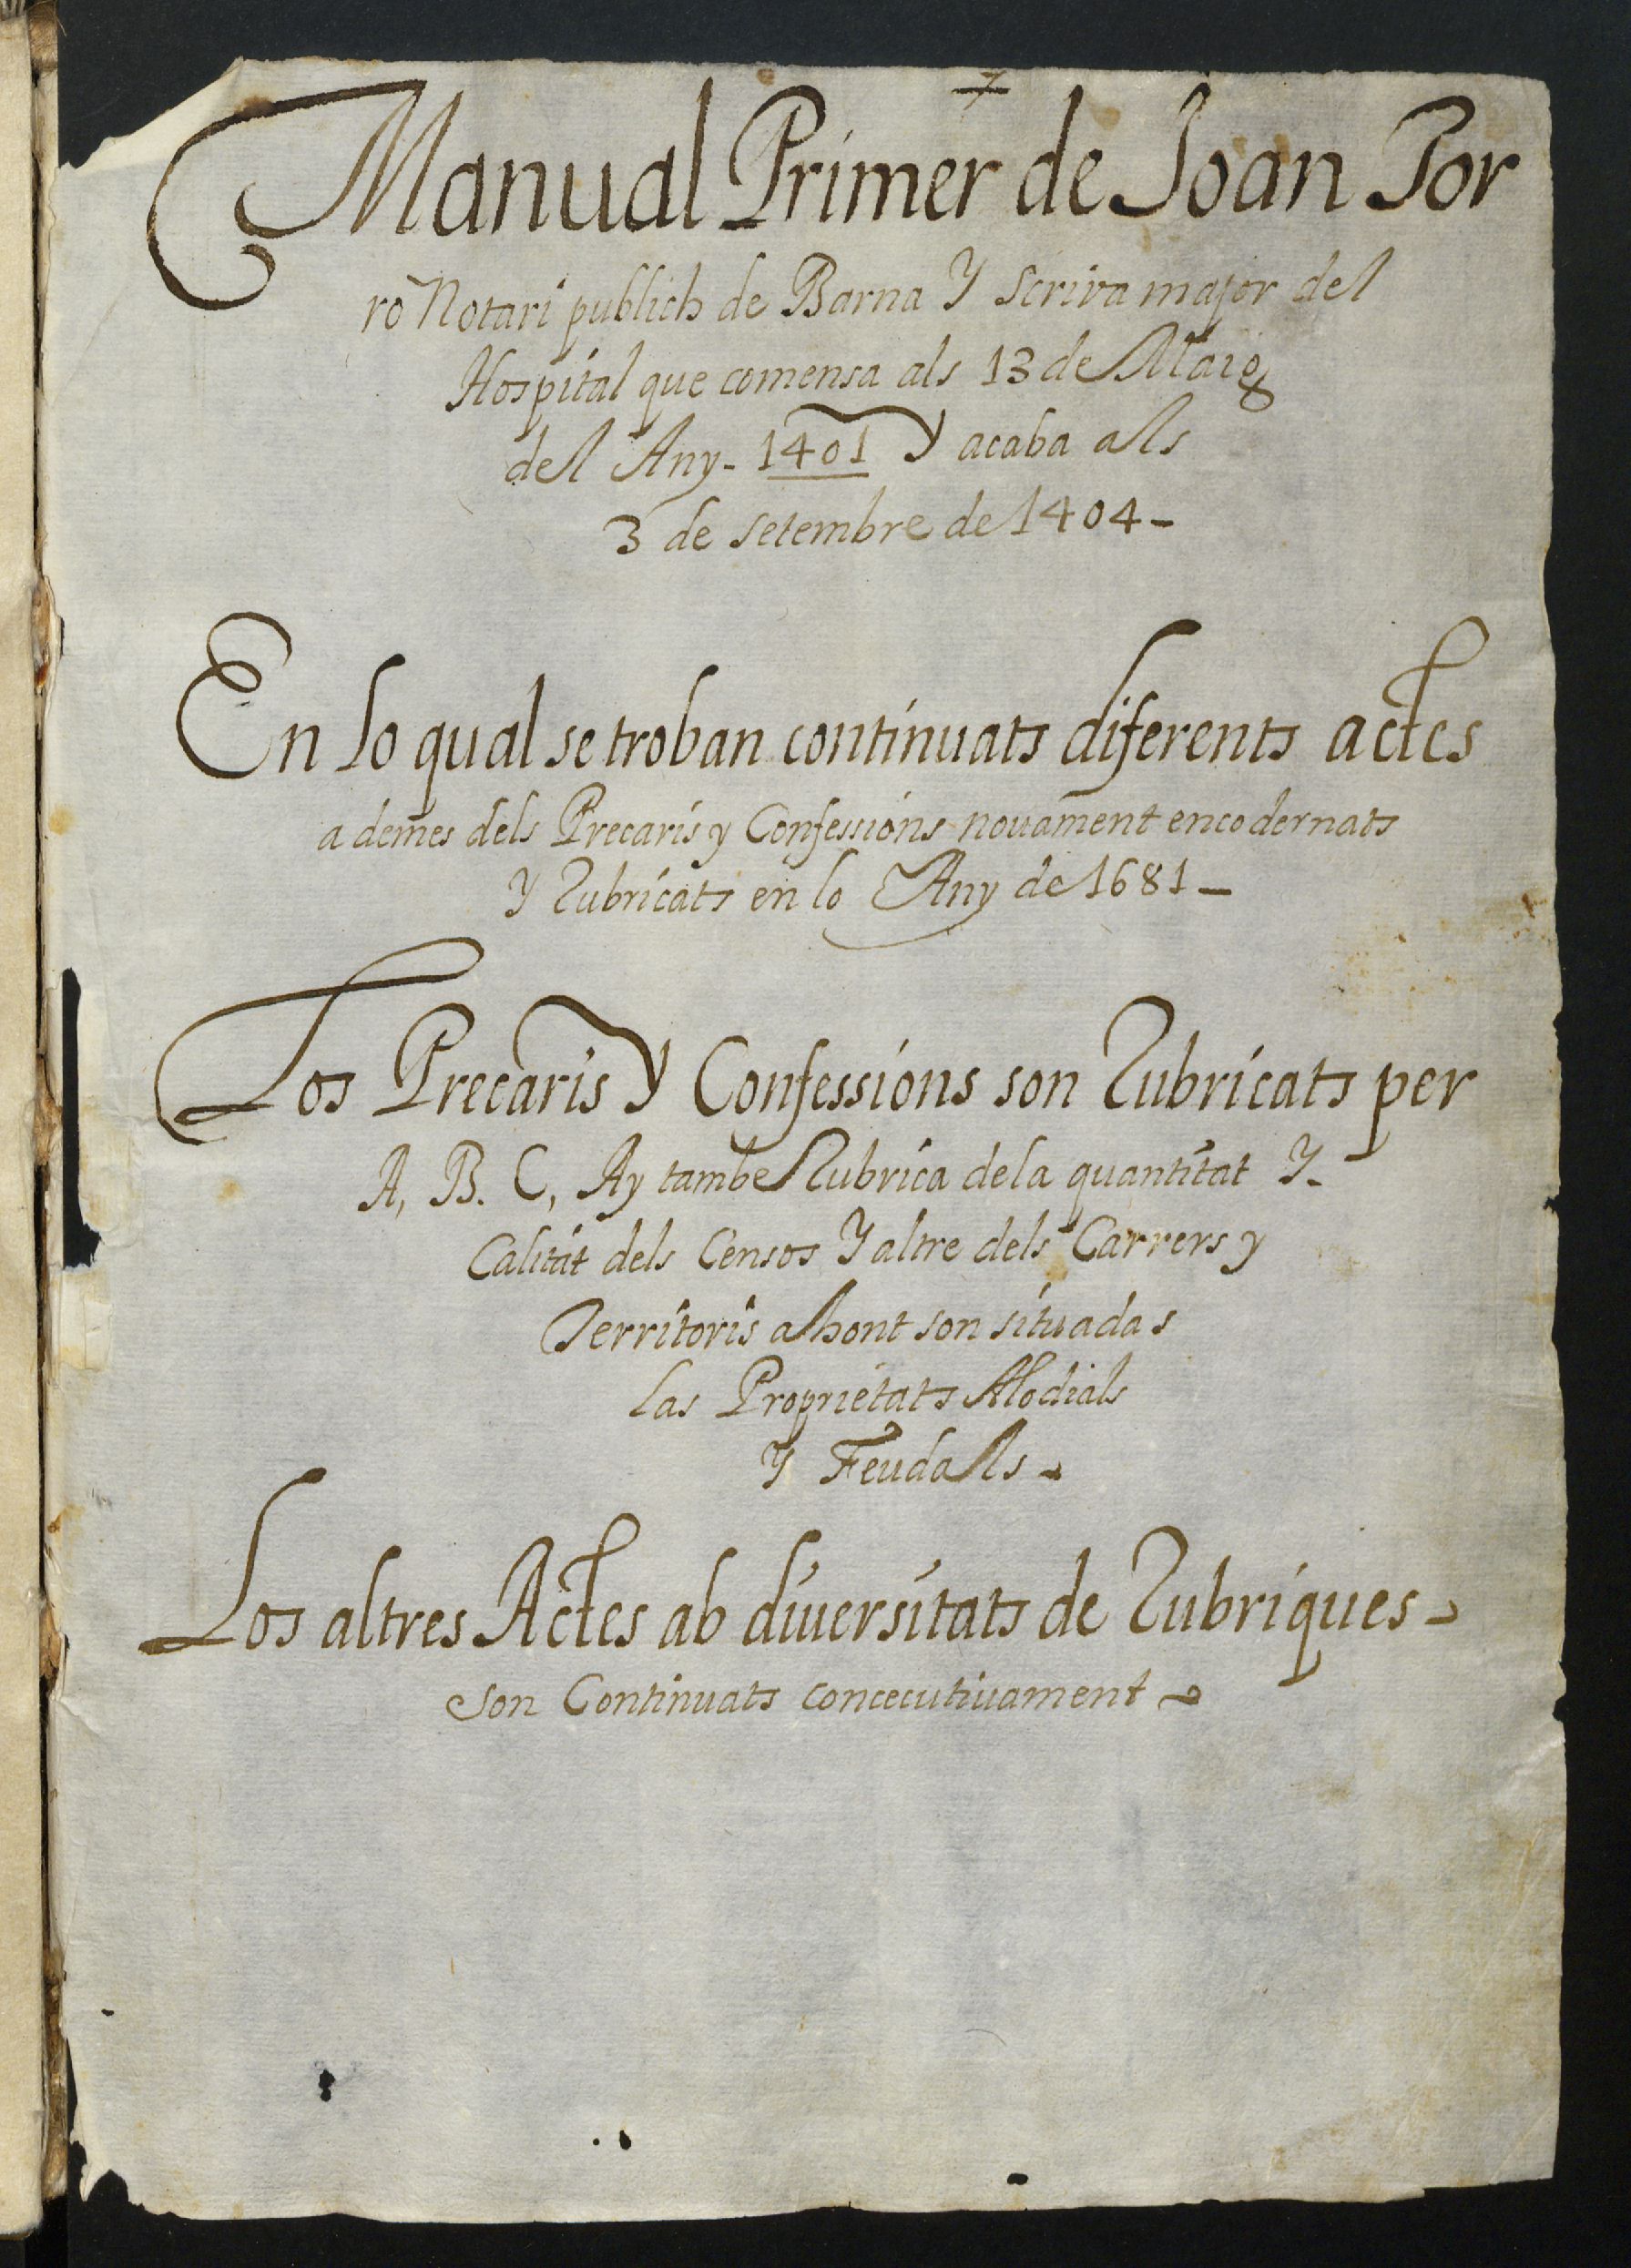 Manual Primer de Joan Tor
ro Notari publich de Barna Y Scriva major del
Hospital que comensa als 13 de Maig
del Any - 1401 Y acaba als
3 de setembre de 1404 -
En lo qual se troban continuats diferents actes
a demes dels Precaris y Confessions novament encodernats
Y Rubricats en lo Any de 1681 -
Los Precaris Y Confessions son Rubricats per
A, B. C, Ay tambe Rubrica dela quantitat Y -
Calitat dels Censos Y altre dels Carrers y
Territoris ahont son situadas
las Proprietats Alodials
Y Feudals -
Los altres Actes ab diversitats de Rubriques -
son Continuats concecutivament -